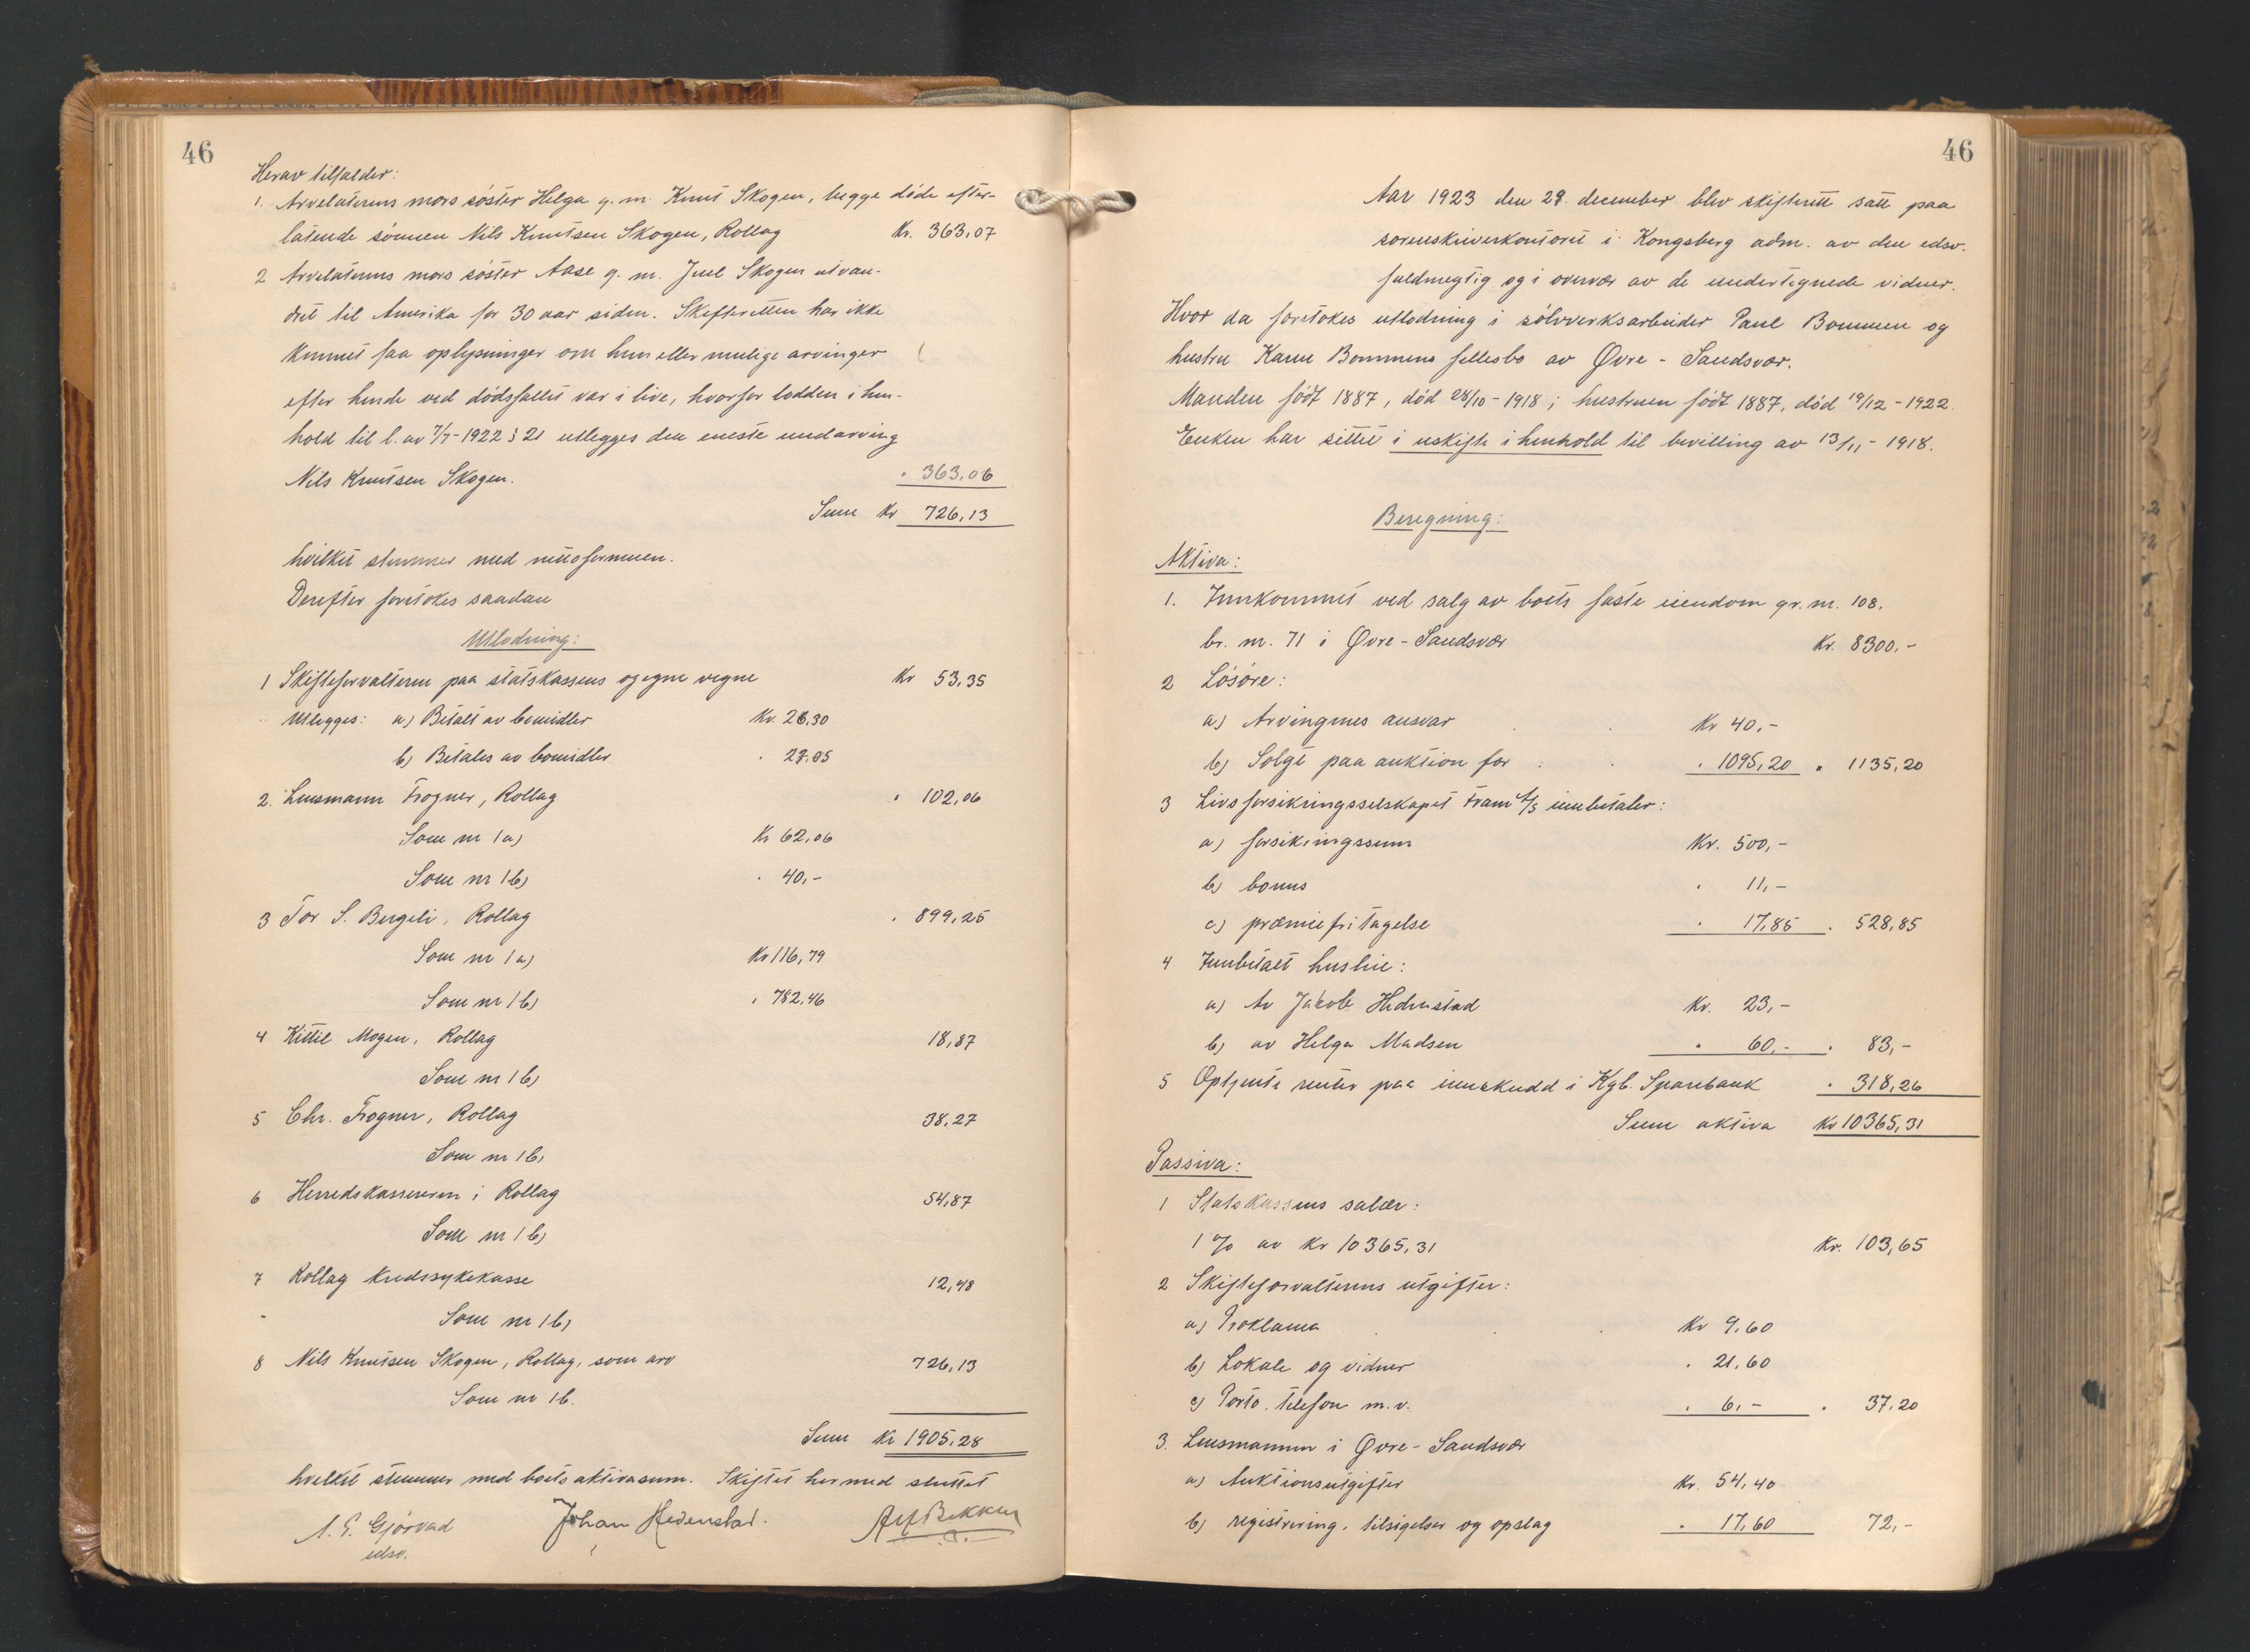 46
Herav tilfalder:
1. Arvelaterens mors søster Helga g. m. Knut Skogen, begge døde efter-
latende sønnen Nils Knutsen Skogen, Rollag Kr. 363,07
2 Arvelaterens mors søster Aase g. m. Juel Skogen utvan-
dret til Amerika for 30 aar siden. Skifteretten har ikke
kunnet faa oplysninger om hun eller mulige arvinger
efter hende ved dødsfallet var i live, hvorfor lodden i hen-
hold til l. av 7/7-1922 § 21 utlegges den eneste medarving
Nils Knutsen Skogen. " 363,06
Sum Kr 726,13
hvilket stemmer med nettoformuen.
Derefter foretokes saadan
Utlodning:
1 Skifteforvalteren paa statskassens og egne vegne Kr 53,35
Utlegges: a) Betalt av bomidler Kr. 26,30
b) Betales av bomidler " 27,05
2. Lensmann Frogner, Rollag " 102,06
Som nr 1a) Kr 62,06
Som nr 1b) " 40,-
3 Tor S. Bergeli, Rollag " 899,25
Som nr 1a) Kr 116,79
Som nr 1b) " 782,46
4 Kittil Mogen, Rollag 18,87
Som nr 1b)
5 Chr. Frogner, Rollag 38,27
Som nr 1b)
6 Herredskassereren i Rollag 54,87
Som nr 1b)
7 Rollag kredssykekasse 12,48
Som nr 1b)
8 Nils Knutsen Skogen, Rollag, som arv 726,13
Som nr 1b.
Sum Kr 1905,28
hvilket stemmer med boets aktivasum. Skiftet hermed sluttet
A. G. Gjørvad Johan Hedenstad. Alf Bekken
edsv.
46
Aar 1923 den 29. december blev skifterett satt paa
sorenskriverkontoret i Kongsberg adm. av den edsv.
fuldmegtig og i overvær av de undertegnede vidner.
Hvor da foretokes utlodning i sølvverksarbeider Paul Bommen og
hustru Karen Bommens fellesbo av Øvre-Sandsvær.
Manden født 1887, død 28/10-1918; hustruen født 1887, død 19/12-1922.
Enken har sittet i uskifte i henhold til bevilling av 13/11-1918.
Beregning:
Aktiva:
1. Innkommet ved salg av boets faste eiendom gr. nr. 108,
br. nr. 71 i Øvre-Sandsvær Kr. 8300,-
2 Løsøre:
a) Arvingenes ansvar Kr 40,-
b) Solgt paa auktion for " 1095,20 " 1135,20
3 Livsforsikringsselskapet Fram A/S innbetaler:
a) forsikringssum Kr. 500,-
b) bonus " 11,-
c) præmiefritagelse " 17,85 " 528,85
4 Innbetalt husleie:
a) Av Jakob Hedenstad Kr. 23,-
b) av Helga Madsen " 60,- " 83,-
5 Optjente renter paa innskudd i Kgb. Sparebank " 318,26
Sum aktiva Kr 10365,31
Passiva:
1 Statskassens salær:
1 % av Kr 10365,31 Kr. 103,65
2 Skifteforvalterens utgifter:
a) Proklama Kr 9,60
b) Lokale og vidner " 21,60
c) Porto. telefon m.v. " 6,- " 37,20
3. Lensmannen i Øvre-Sandsvær
a) Auktionsutgifter Kr. 54,40
b) registrering, tilsigelser og opslag " 17,60 72,-